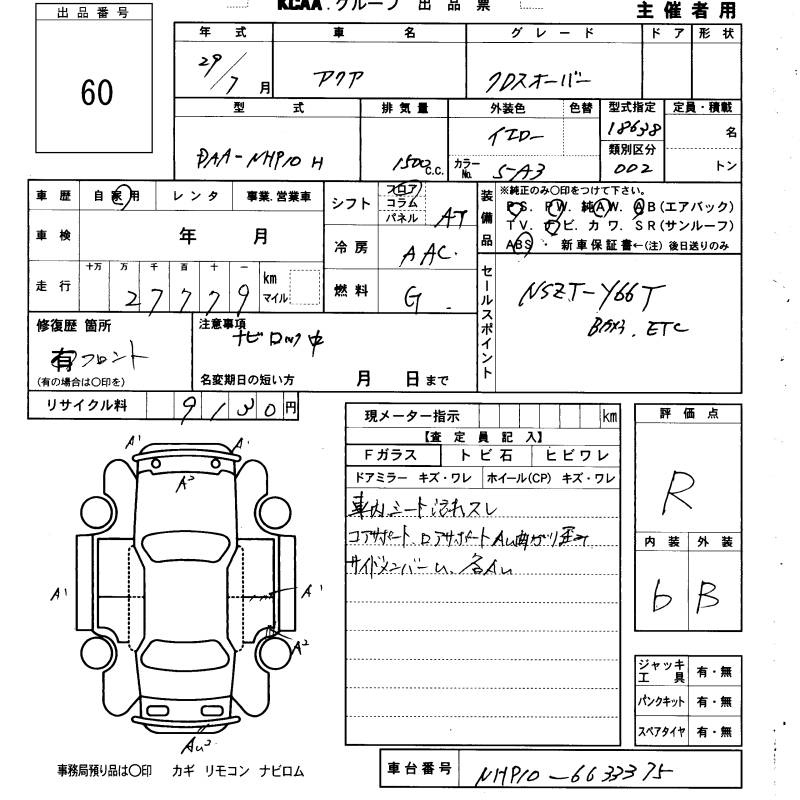 KCAA.グループ 出品票
主催者用
出品番号
60
年式 車名 グレード ドア 形状
29/7月 アクア クロスオーバー
型式 排気量 外装色 色替 型式指定 定員・積載
DAA-NHP10H 1500c.c. イエロー 18638 名
類別区分
カラーNo. 5-A3 002 トン
車歴 自家用 レンタ 事業.営業車
シフト フロア コラム パネル AT
装備品
※純正のみ○印をつけて下さい。
PS. PW. 純AW. AB(エアバック)
TV. ナビ. カワ. SR(サンルーフ)
ABS ・ 新車保証書←(注) 後日送りのみ
車検 年 月
冷房 AAC.
走行 十万 万 千 百 十 一
27779 km マイル
燃料 G.
セールスポイント
NSZT-Y66T
Bカメラ. ETC
修復歴 箇所
有 フロント
(有の場合は○印を)
注意事項
ナビロック中
名変期日の短い方 月 日まで
リサイクル料 9130円
現メーター指示 km
【査定員記入】
Fガラス トビ石 ヒビワレ
ドアミラー キズ・ワレ ホイール(CP) キズ・ワレ
車内シート汚れスレ
コアサポート ロアサポートAu曲がり歪み
サイドメンバーU、各Au
評価点
R
内装 外装
6 B
A1 A1
A2
A1 A1
A2
Au2
ジャッキ工具 有・無
パンクキット 有・無
スペアタイヤ 有・無
事務局預り品は○印 カギ リモコン ナビロム
車台番号 NHP10-6633375